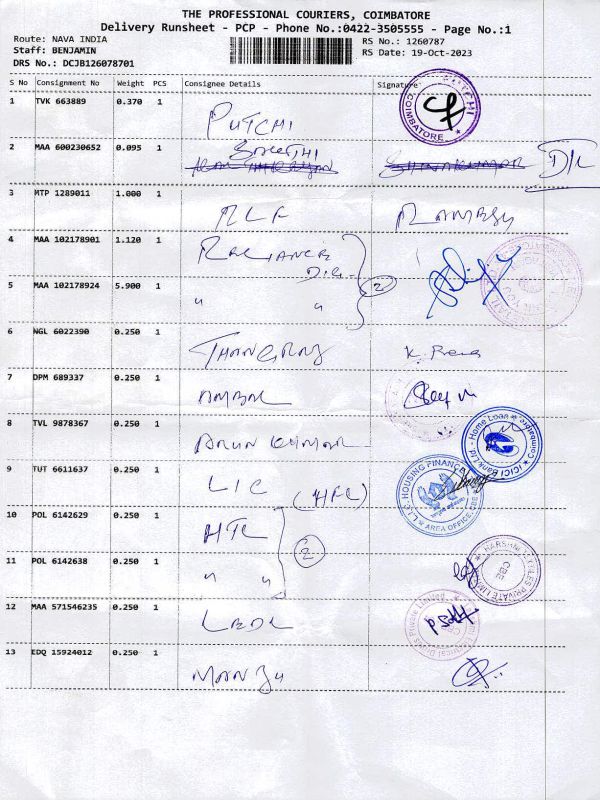 THE PROFESSIONAL COURIERS, COIMBATORE
Delivery Runsheet - PCP - Phone No.:0422-3505555 - Page No.:1
Route: NAVA INDIA
Staff: BENJAMIN
DRS No.: DCJB126078701
RS No.: 1260787
RS Date: 19-Oct-2023
S No Consignment No Weight PCS Consignee Details Signature
1 TVK 663889 0.370 1 PUTCHI
COIMBATORE
2 MAA 600230652 0.095 1
3 MTP 1289011 1.000 1 RLF RAMESH
4 MAA 102178901 1.120 1 RELIANCE
5 MAA 102178924 5.900 1 " " 2
6 NGL 6022390 0.250 1 THANGRAJ
7 DPM 689337 0.250 1
8 TVL 9878367 0.250 1 ARUN KUMAR
ICICI Bank Ltd. - Home Loan Coimbatore
9 TUT 6611637 0.250 1 LIC (HFL)
L.I.C. HOUSING FINANCE AREA OFFICE, CBE
10 POL 6142629 0.250 1 HTL
11 POL 6142638 0.250 1 " " 2
CBE
12 MAA 571546235 0.250 1
13 EDQ 15924012 0.250 1 MANJU